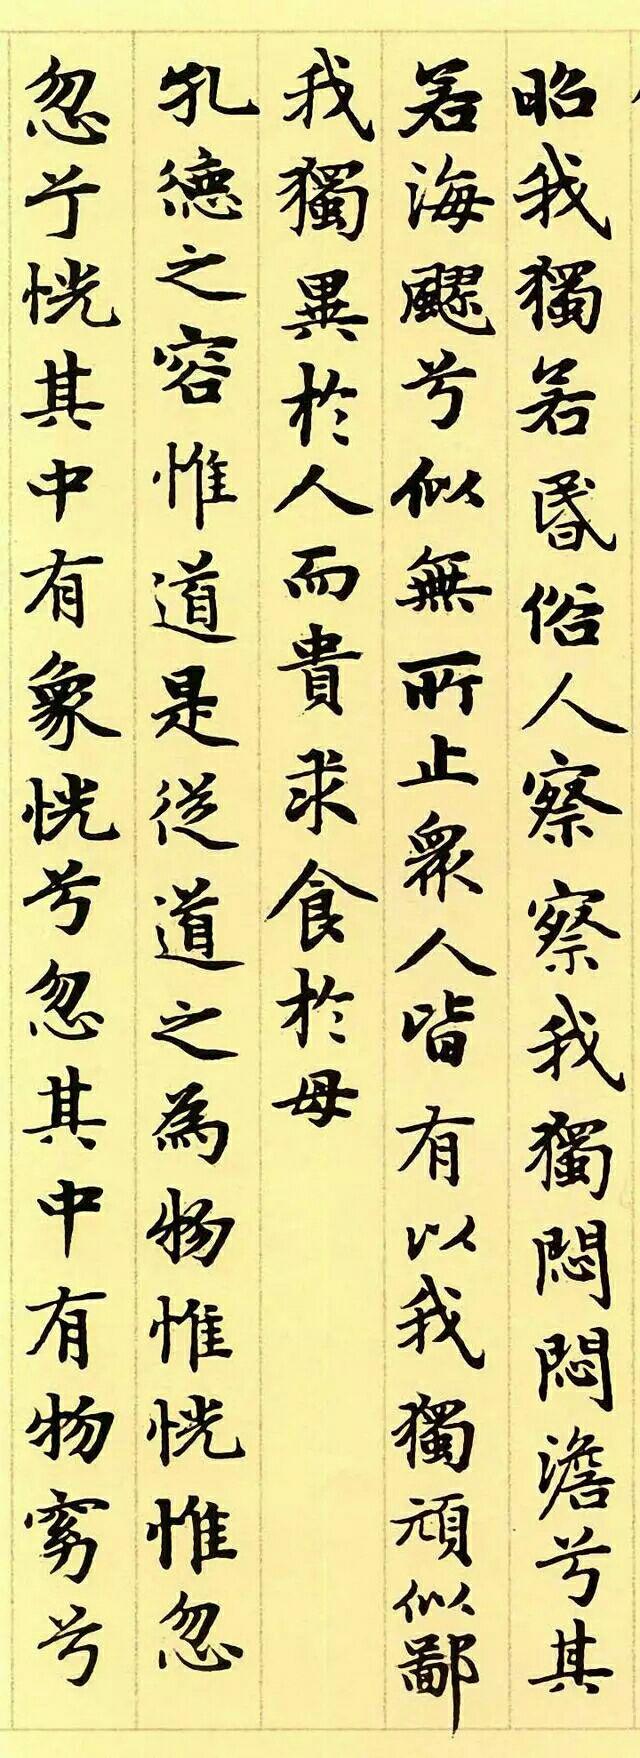 昭我獨若昏俗人察察我獨悶悶澹兮其
若海飂兮似無所止衆人皆有以我獨頑似鄙
我獨異於人而貴求食於母
孔德之容惟道是從道之為物惟恍惟忽
忽兮恍其中有象恍兮忽其中有物窈兮